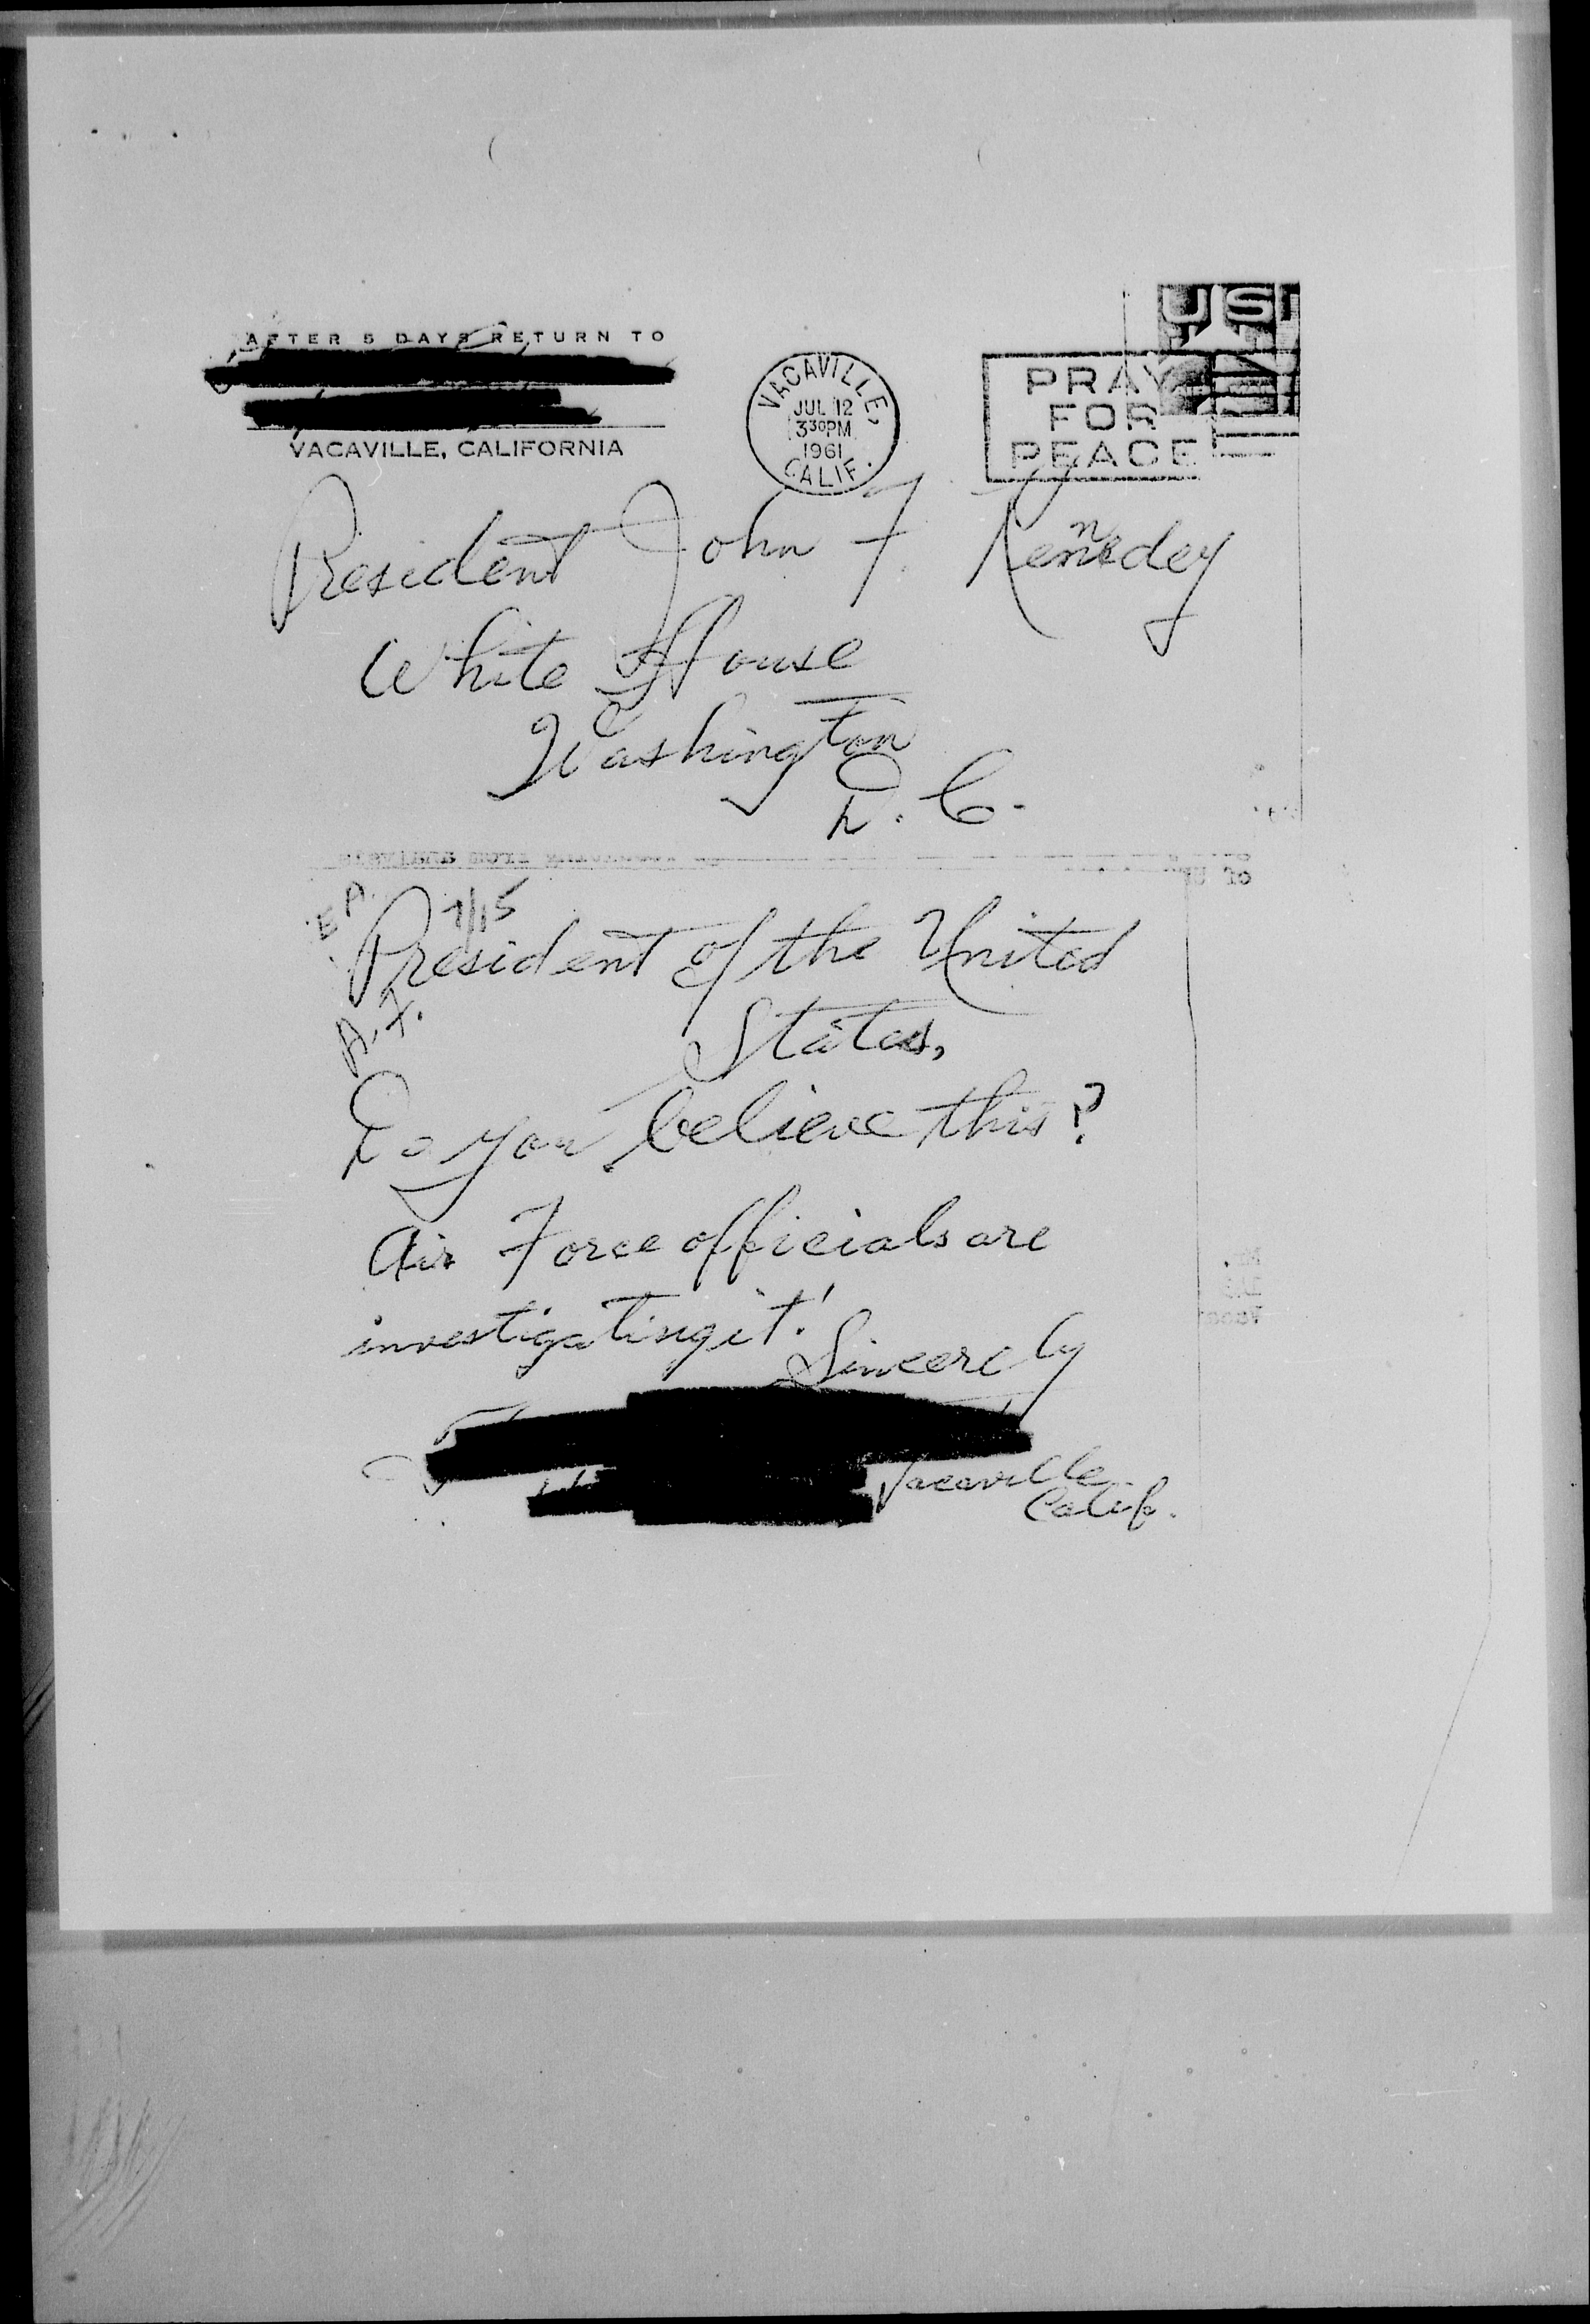 AFTER 5 DAYS RETURN TO
VACAVILLE, CALIFORNIA
VACAVILLE,
JUL 12
3 30 PM
1961
CALIF.
US
PRAY
FOR
PEACE
President John F. Kennedey
White House
Washington
D.C.
7/15
President of the United
A.F.
States,
Do you believe this?
Air Force officials are
investigating it!
Sincerely
Vacaville
Calif.